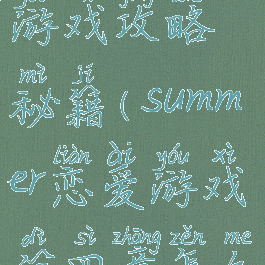 游戏攻略
mì jí
秘籍(summ
liàn ài yóu xì
er恋爱游戏
dì sì zhāng zěn me